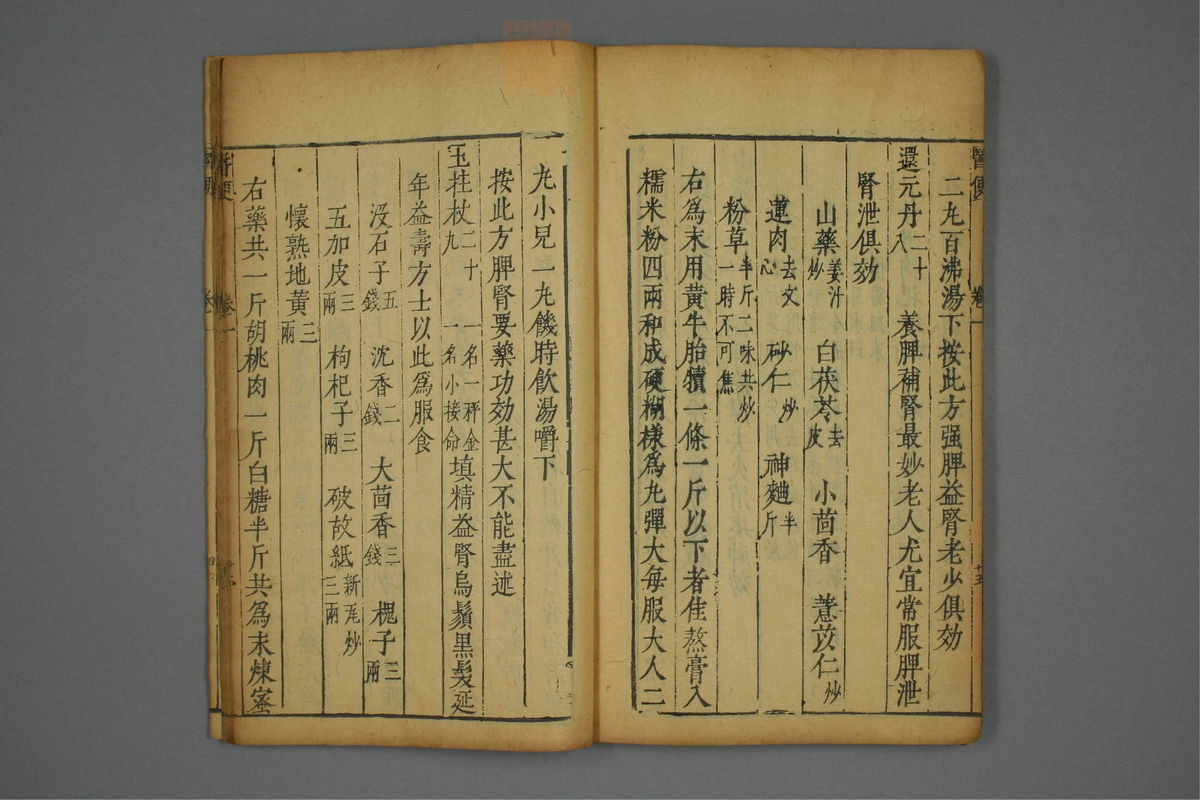 二丸百沸湯下按此方强脾益腎老少俱効
還元丹二十八 養脾補腎最妙老人尤宜常服脾泄
腎泄俱効
山藥姜汁炒 白茯苓去皮 小茴香 薏苡仁炒
蓮肉去文心 砂仁炒 神麯半斤
粉草半斤二味共炒一時不可焦
右為末用黃牛胎犢一條一斤以下者佳熬膏入
糯米粉四兩和成硬糊樣為丸彈大每服大人二
丸小兒一丸饑時飲湯嚼下
按此方脾腎要藥功効甚大不能盡述
玉柱杖二十九 一名一秤金一名小接命 填精益腎烏鬚黑髮延
年益壽方士以此為服食
沒石子五錢 沈香二錢 大茴香三錢 槐子三兩
五加皮三兩 枸杞子三兩 破故紙新瓦炒三兩
懷熟地黃三兩
右藥共一斤胡桃肉一斤白糖半斤共為末煉蜜
醫便
卷一
十五